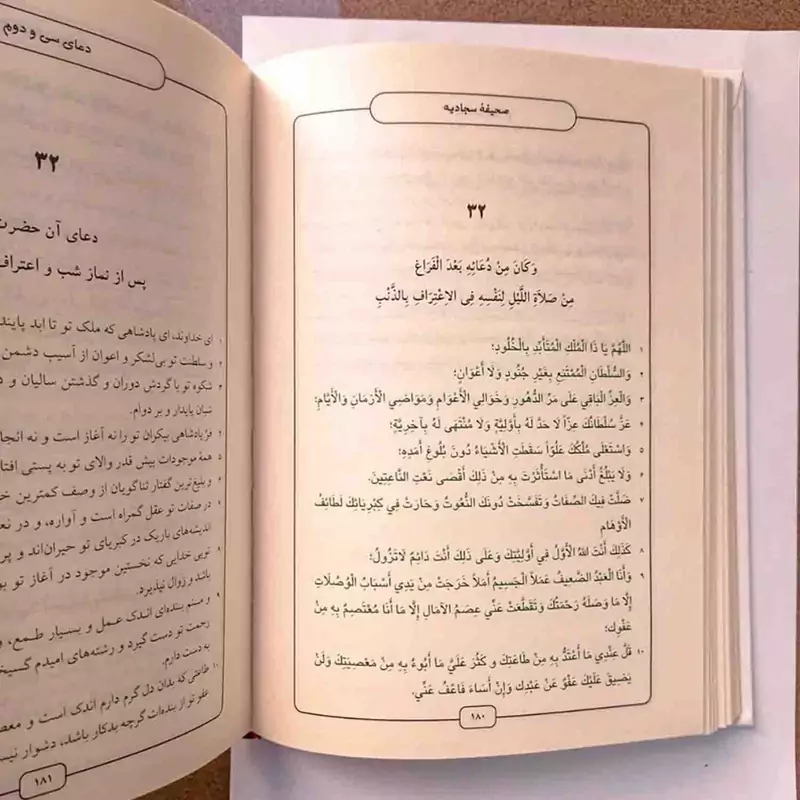 صحیفهٔ سجادیه
۳۲
وَکَانَ مِنْ دُعَائِهِ بَعْدَ الْفَرَاغِ
مِنْ صَلاَةِ اللَّیْلِ لِنَفْسِهِ فِی الاِعْتِرَافِ بِالذَّنْبِ
۱ اللَّهُمَّ یَا ذَا الْمُلْكِ الْمُتَأَبِّدِ بِالْخُلُودِ؛
۲ وَالسُّلْطَانِ الْمُمْتَنِعِ بِغَیْرِ جُنُودٍ وَلَا أَعْوَانٍ؛
۳ وَالْعِزِّ الْبَاقِی عَلَی مَرِّ الدُّهُورِ وَخَوَالِی الْأَعْوَامِ وَمَوَاضِی الْأَزْمَانِ وَالْأَیَّامِ؛
۴ عَزَّ سُلْطَانُكَ عِزّاً لَا حَدَّ لَهُ بِأَوَّلِیَّةٍ وَلَا مُنْتَهَی لَهُ بِآخِرِیَّةٍ؛
۵ وَاسْتَعْلَی مُلْكُكَ عُلُوّاً سَقَطَتِ الْأَشْیَاءُ دُونَ بُلُوغِ أَمَدِهِ؛
۶ وَلَا یَبْلُغُ أَدْنَی مَا اسْتَأْثَرْتَ بِهِ مِنْ ذَلِكَ أَقْصَی نَعْتِ النَّاعِتِینَ.
۷ ضَلَّتْ فِیكَ الصِّفَاتُ وَتَفَسَّخَتْ دُونَكَ النُّعُوتُ وَحَارَتْ فِی کِبْرِیَائِكَ لَطَائِفُ
الْأَوْهَامِ
۸ کَذَلِكَ أَنْتَ اللهُ الْأَوَّلُ فِی أَوَّلِیَّتِكَ وَعَلَی ذَلِكَ أَنْتَ دَائِمٌ لَاتَزُولُ؛
۹ وَأَنَا الْعَبْدُ الضَّعِیفُ عَمَلاً الْجَسِیمُ أَمَلاً خَرَجَتْ مِنْ یَدِی أَسْبَابُ الْوُصُلَاتِ
إِلَّا مَا وَصَلَهُ رَحْمَتُكَ وَتَقَطَّعَتْ عَنِّی عِصَمُ الآمَالِ إِلَّا مَا أَنَا مُعْتَصِمٌ بِهِ مِنْ
عَفْوِكَ؛
۱۰ قَلَّ عِنْدِی مَا أَعْتَدُّ بِهِ مِنْ طَاعَتِكَ وَ کَثُرَ عَلَیَّ مَا أَبُوءُ بِهِ مِنْ مَعْصِیَتِكَ وَلَنْ
یَضِیقَ عَلَیْكَ عَفْوٌ عَنْ عَبْدِكَ وَإِنْ أَسَاءَ فَاعْفُ عَنِّی.
۱۸۰
دعای سی و دوم
۳۲
دعای آن حضرت
پس از نماز شب و اعتراف
۱ ای خداوند، ای پادشاهی که ملک تو تا ابد پایند
۲ و سلطنت تو بی‌لشکر و اعوان از آسیب دشمن
۳ شکوه تو با گردش دوران و گذشتن سالیان و
پایدار و بر دوام.
۴ فرّ پادشاهی بیکران تو را نه آغاز است و نه انجا
۵ همهٔ موجودات پیش قدر والای تو به پستی افتا
۶ و بلیغ‌ترین گفتار ثناگویان از وصف کمترین
۷ در صفات تو عقل گمراه است و آواره، و در
اندیشه‌های باریک در کبریای تو حیران‌اند و
۸ تویی خدایی که نخستین موجود در آغاز تو
باشد و زوال نپذیرد.
۹ و منم بنده‌ای اندک عمل و بسیار طمع،
رحمت تو دست گیرد و رشته‌های امیدم
به دست دارم.
۱۰ طاعتی که بدان دل گرم دارم اندک است و
عفو تو از بنده‌ات گرچه بدکار باشد، دشوار
۱۸۱